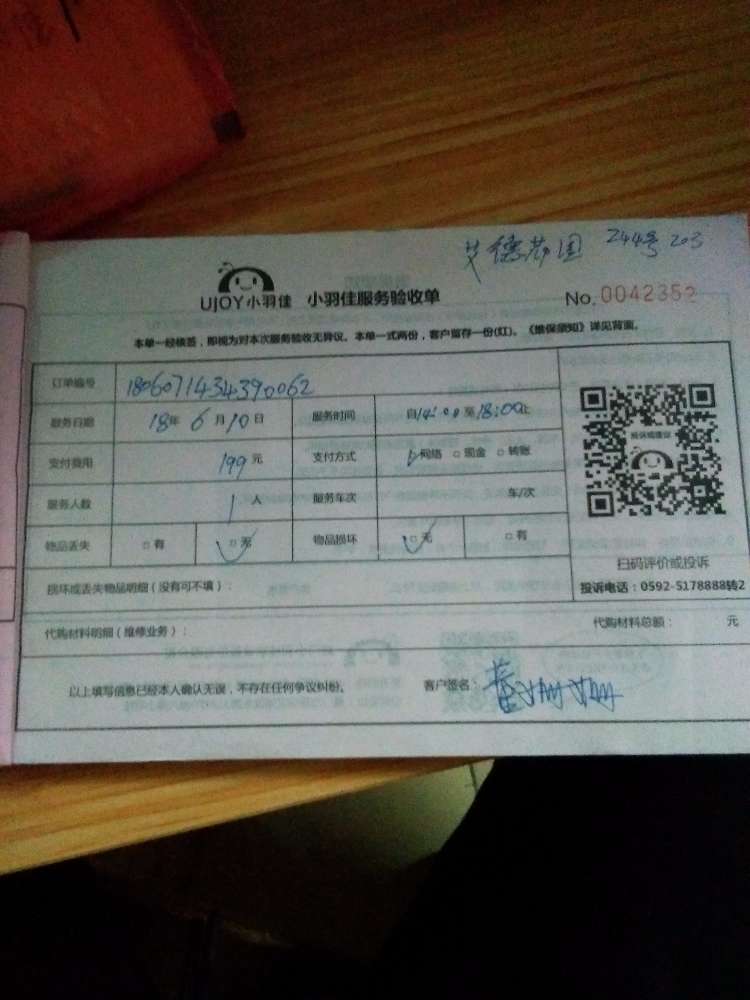 艾德花园 244号 203
UJOY小羽佳 小羽佳服务验收单 No. 0042352
本单一经核签，即视为对本次服务验收无异议。本单一式两份，客户留存一份(红)。《维保须知》详见背面。
订单编号 1806071434390062
服务日期 18年 6月10日 服务时间 自14:00至18:00止
支付费用 199元 支付方式 网络 □现金 □转账
服务人数 1人 服务车次 车/次
物品丢失 □有 □无 物品损坏 □无 □有
扫码评价或投诉
损坏或丢失物品明细（没有可不填）： 投诉电话：0592-5178888转2
代购材料明细（维修业务）： 代购材料总额： 元
以上填写信息已经本人确认无误，不存在任何争议纠纷。 客户签名：